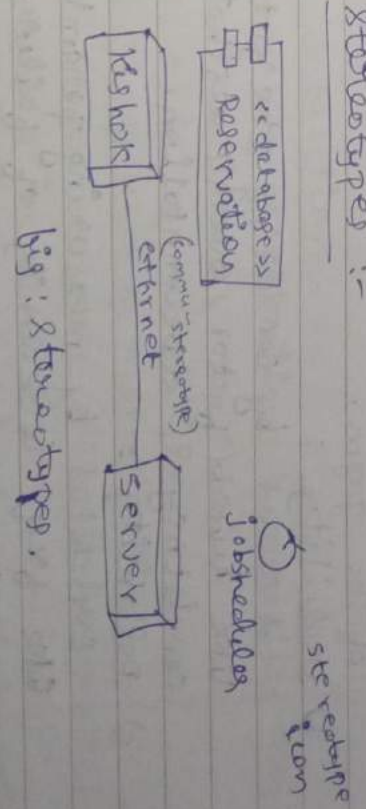 Stereotypes :-
<<database>>
Reservation
stereotype
icon
jobsheduler
(commu-stereotype)
Kishok
ethrnet
Server
fig: Stereotypes.